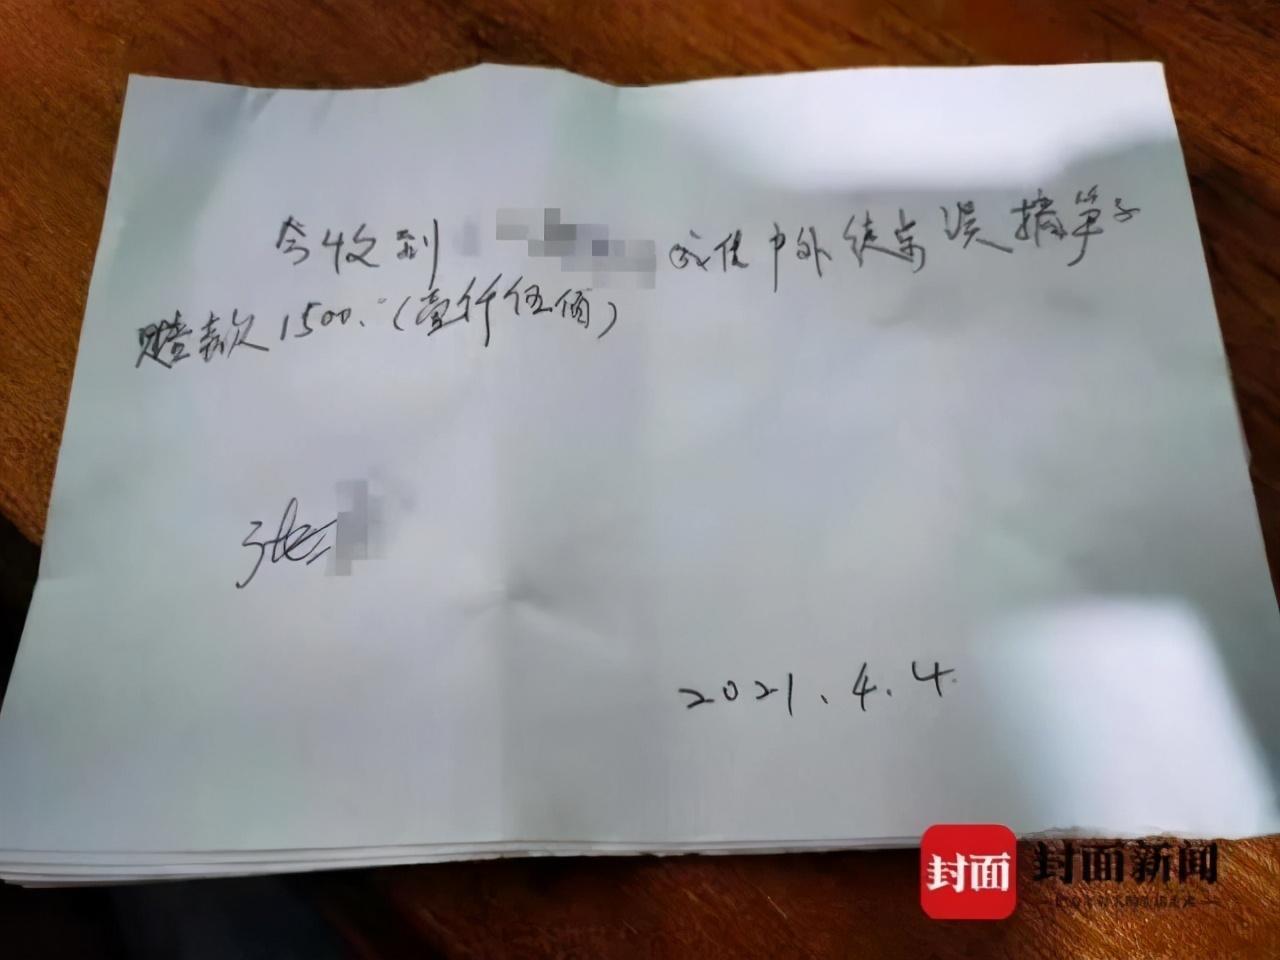 今收到 成佳户外徒步误摘笋子
赔款1500.(壹仟伍佰)
张
2021.4.4.
封面 封面新闻